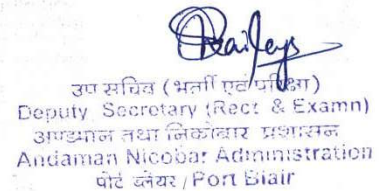 उप सचिव (भर्ती एवं परिक्षा)
Deputy Secretary (Rect & Examn)
अण्डमान तथा निकोबार प्रशासन
Andaman Nicobar Administration
पोर्ट ब्लेयर / Port Blair